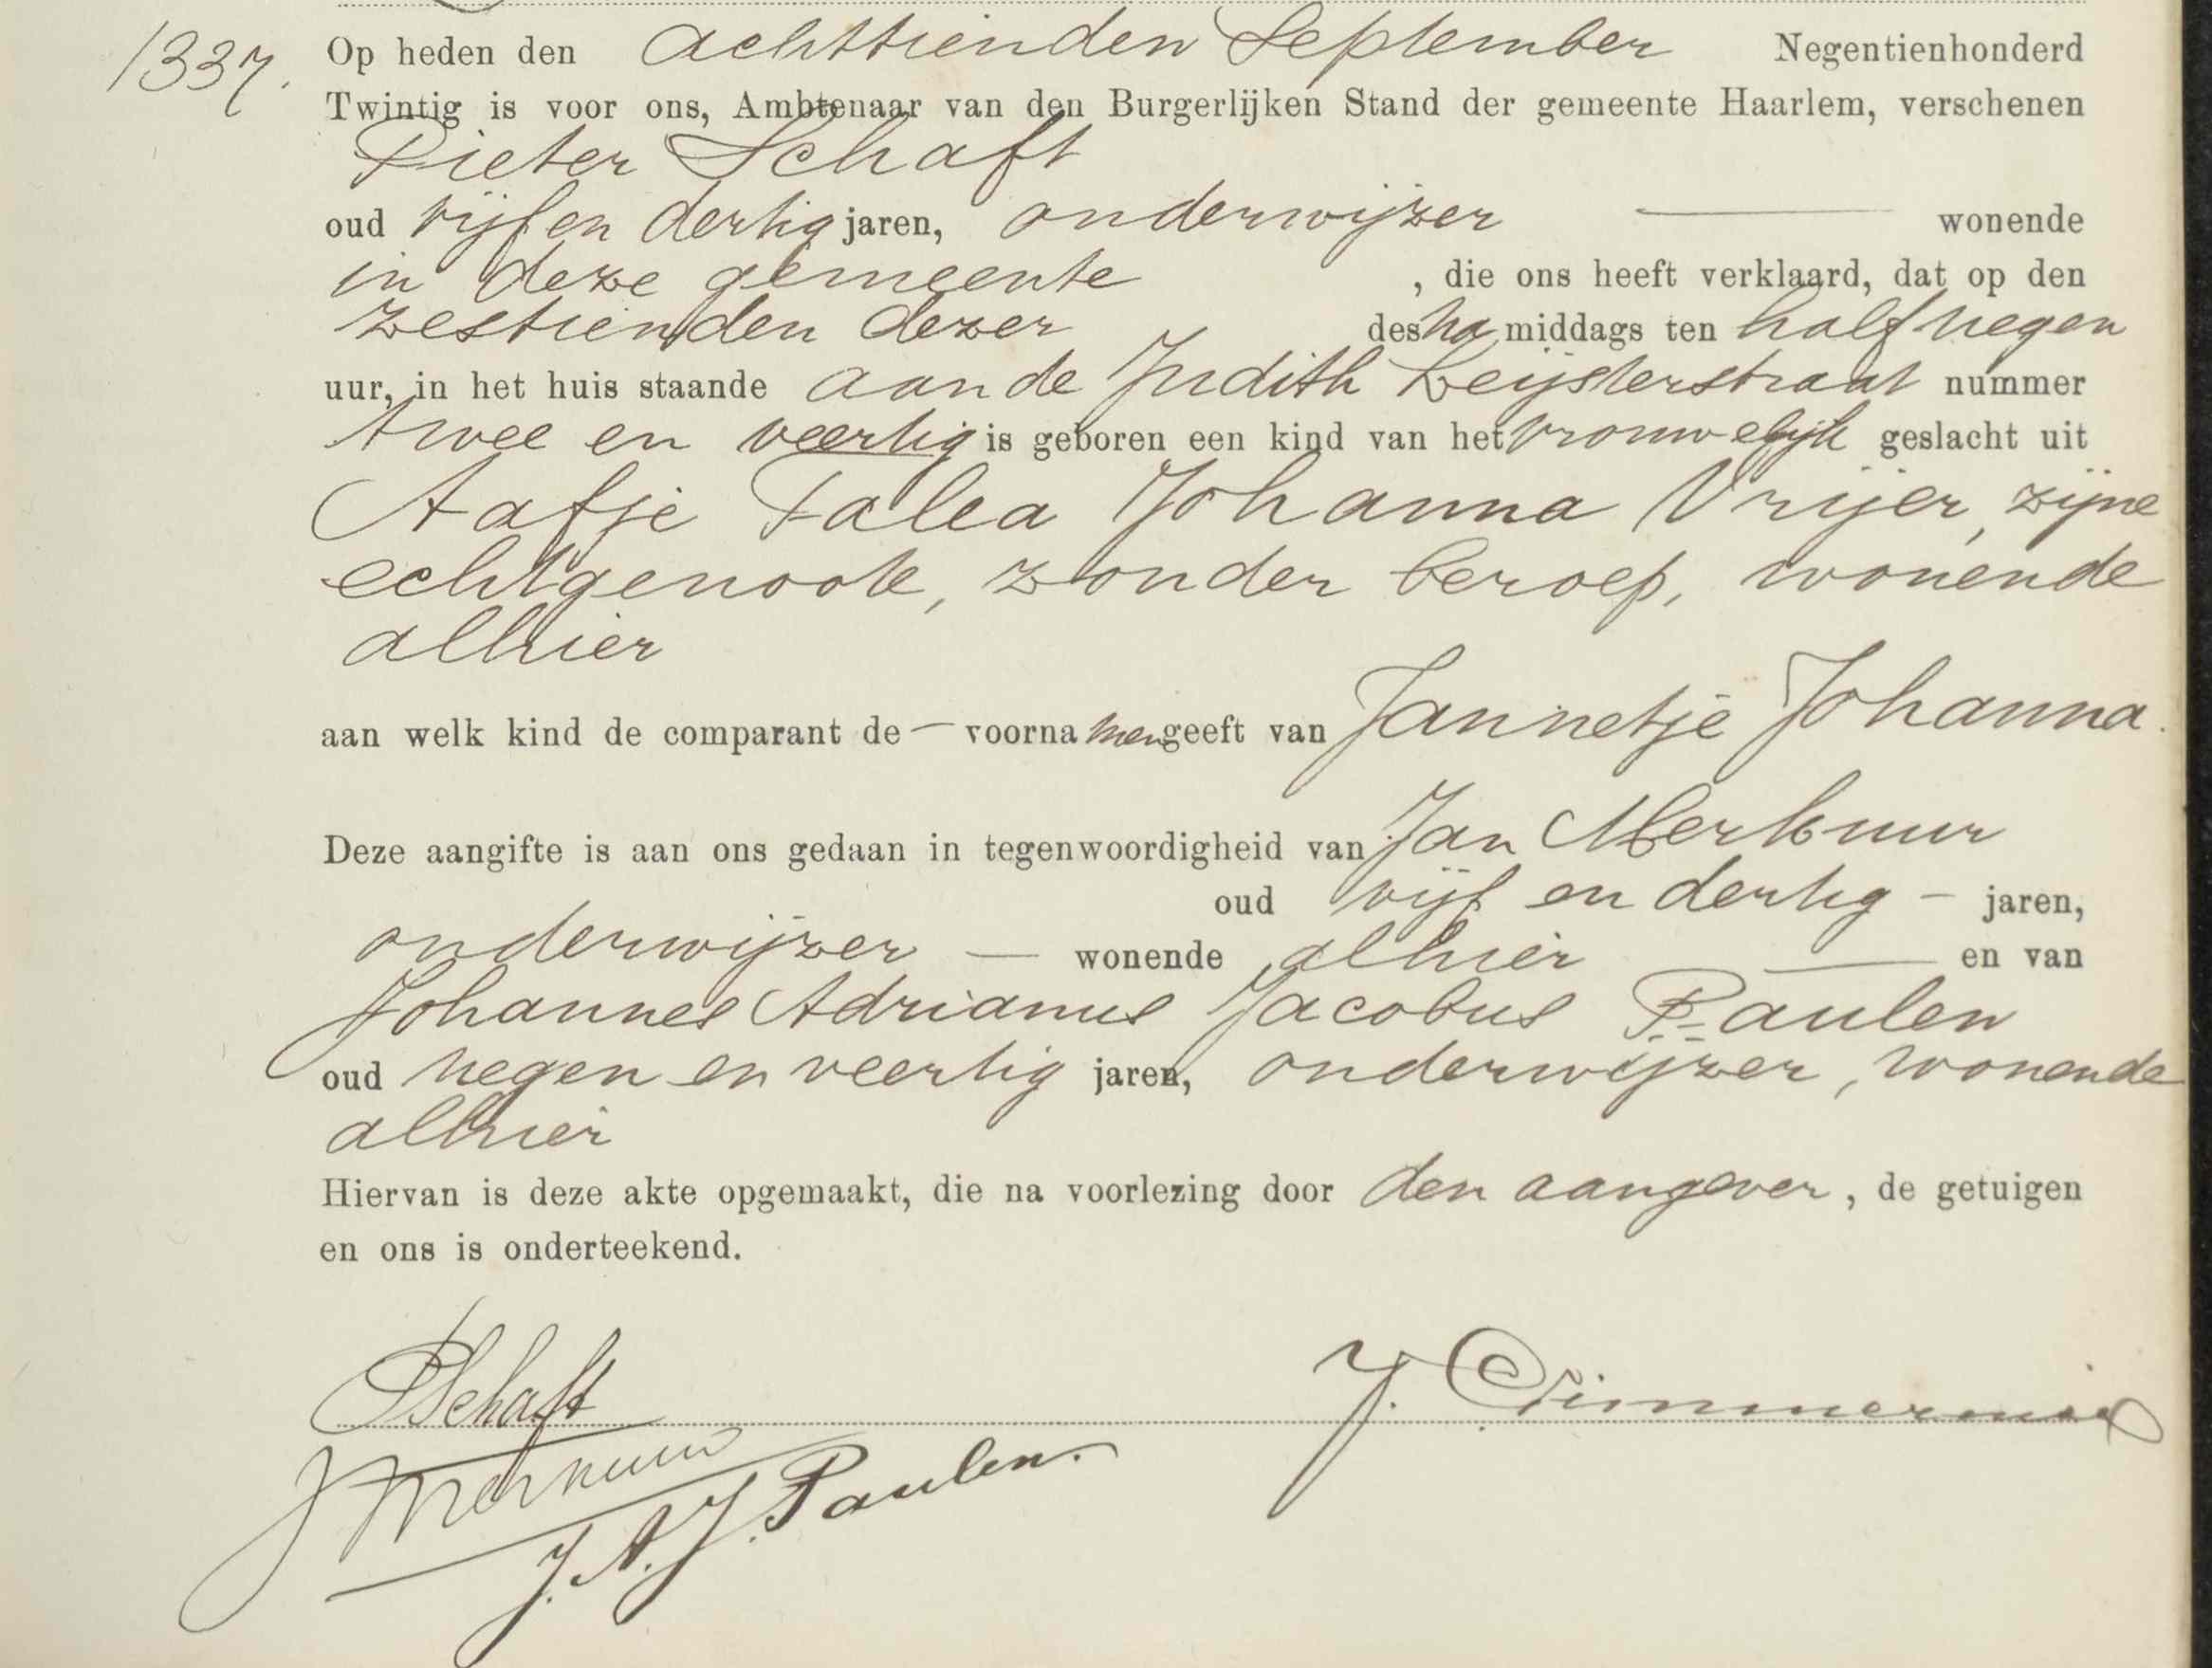 1337.
Op heden den achttienden September Negentienhonderd
Twintig is voor ons, Ambtenaar van den Burgerlijken Stand der gemeente Haarlem, verschenen
Pieter Schaft
oud vijf en dertig jaren, onderwijzer — wonende
in deze gemeente , die ons heeft verklaard, dat op den
zestienden dezer des na middags ten half negen
uur, in het huis staande aan de Judith Leijsterstraat nummer
twee en veertig is geboren een kind van het vrouwelijk geslacht uit
Aafje Talea Johanna Vrijer, zijne
echtgenoote, zonder beroep, wonende
alhier
aan welk kind de — voornamen geeft van Jannetje Johanna.
Deze aangifte is aan ons gedaan in tegenwoordigheid van Jan Merkuur
oud vijf en dertig — jaren,
onderwijzer — wonende alhier — en van
Johannes Adrianus Jacobus Paulen
oud negen en veertig jaren, onderwijzer, wonende
alhier
Hiervan is deze akte opgemaakt, die na voorlezing door den aangever, de getuigen
en ons is onderteekend.
PSchaft
J Merkuur
J. A. J. Paulen.